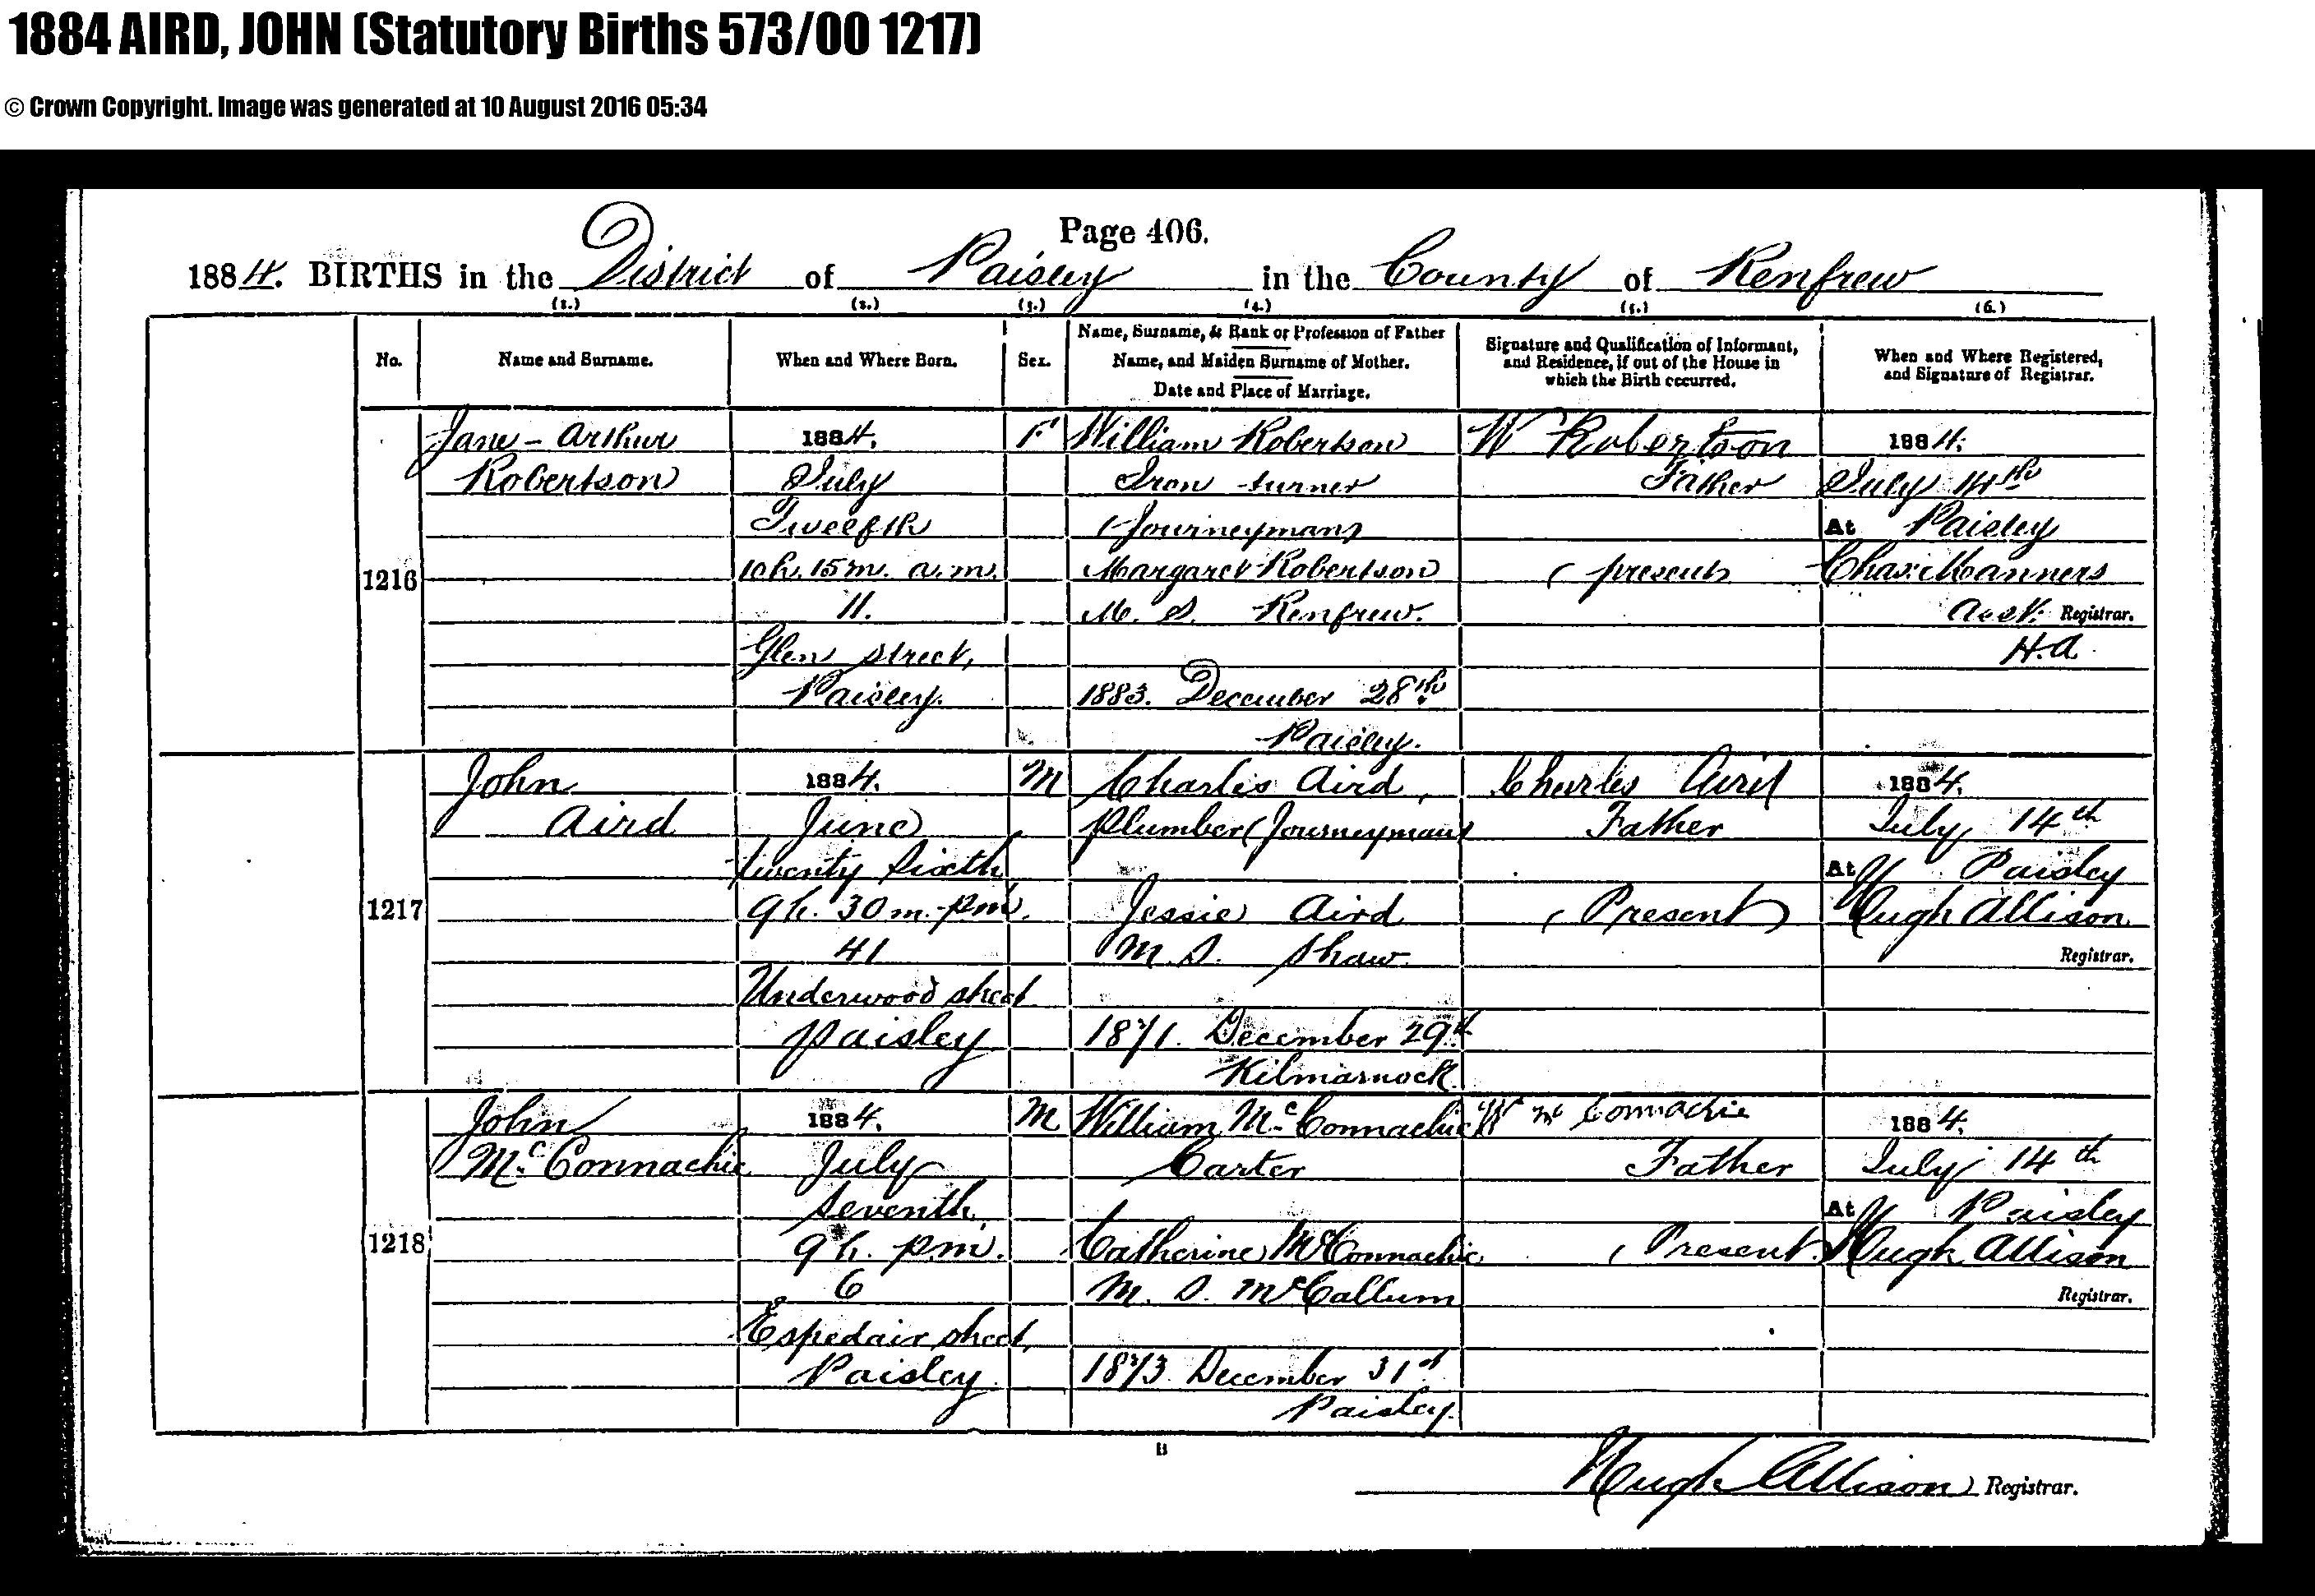 1884 AIRD, JOHN (Statutory Births 573/00 1217)
© Crown Copyright. Image was generated at 10 August 2016 05:34
Page 406.
1884. BIRTHS in the District of Paisley in the County of Renfrew
(1.) (2.) (3.) (4.) (5.) (6.)
No.
Name and Surname.
When and Where Born.
Sex.
Name, Surname, & Rank or Profession of Father
Name, and Maiden Surname of Mother.
Date and Place of Marriage.
Signature and Qualification of Informant,
and Residence, if out of the House in
which the Birth occurred.
When and Where Registered,
and Signature of Registrar.
1216
Jane Arthur
Robertson
1884.
July
Twelfth
10h. 15m. a.m.
11.
Glen Street,
Paisley.
F
William Robertson
Iron turner
(Journeyman)
Margaret Robertson
M.S. Renfrew.
1883. December 28th
Paisley.
W Robertson
Father
(present)
1884.
July 14th
At Paisley
Chas. Manners
Asst. Registrar.
H.A.
1217
John
Aird
1884.
June
twenty sixth
9h. 30m. p.m.
41
Underwood street
Paisley
M
Charles Aird,
Plumber (Journeyman)
Jessie Aird
M.S. Shaw.
1871. December 29th
Kilmarnock
Charles Aird
Father
(Present)
1884.
July 14th
At Paisley
Hugh Allison
Registrar.
1218
John
McConnachie
1884.
July
Seventh,
9h. p.m.
6
Espedair street,
Paisley.
M
William McConnachie
Carter
Catherine McConnachie
M.S. McCallum
1873. December 31st
Paisley.
W McConnachie
Father
(Present)
1884.
July 14th
At Paisley
Hugh Allison
Registrar.
B
Hugh Allison Registrar.